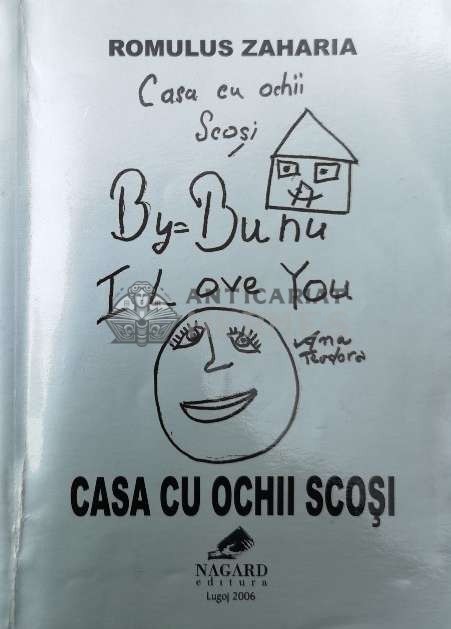 ROMULUS ZAHARIA
Casa cu ochii
Scoși
By=Bunu
I Love You
ANTICARIAT
Ana
Teodora
CASA CU OCHII SCOȘI
NAGARD
editura
Lugoj 2006